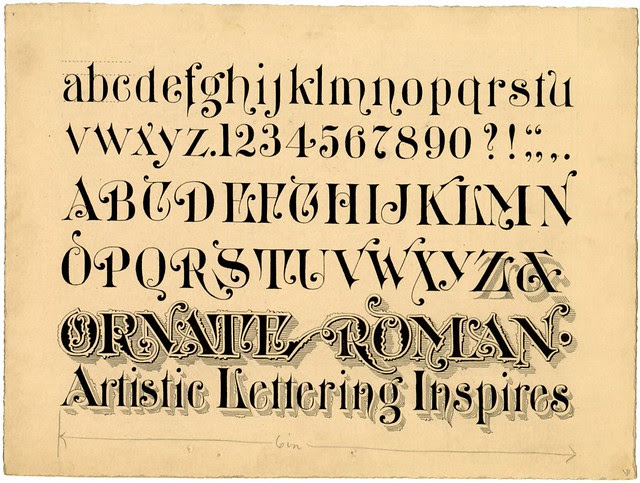 abcdefghijklmnopqrstu
vwxyz.1234567890?!“;,.
ABCDEFGHIJKLMN
OPQRSTUVWXYZ&
ORNATE ROMAN.
Artistic Lettering Inspires
6in